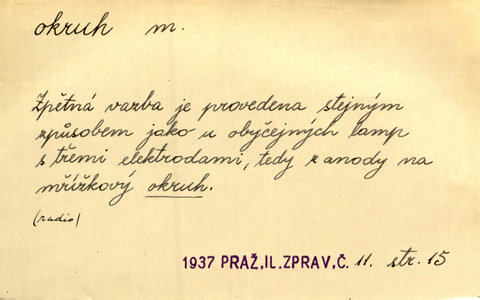 okruh m.
Zpětná vazba je provedena stejným
způsobem jako u obyčejných lamp
s třemi elektrodami, tedy z anody na
mřížkový okruh.
(radio)
1937 PRAŽ.IL.ZPRAV,Č. 11. str. 15